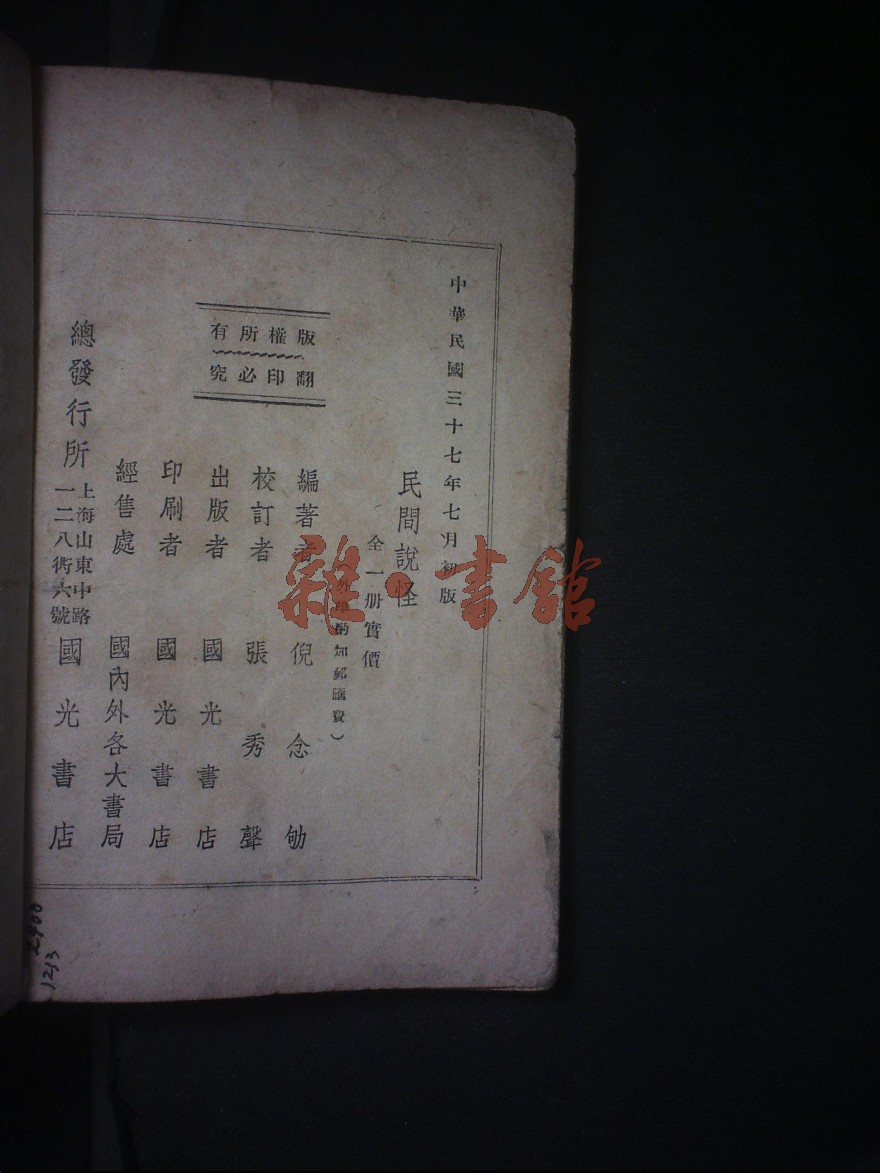 中華民國三十七年七月初版
民間說怪
全一册實價
(外埠酌加郵匯費)
編著者 倪念劬
校訂者 張秀聲
出版者 國光書店
印刷者 國光書店
經售處 國內外各大書局
總發行所 上海山東中路一二八街六號 國光書店
版權所有
翻印必究
雜·書館
1213